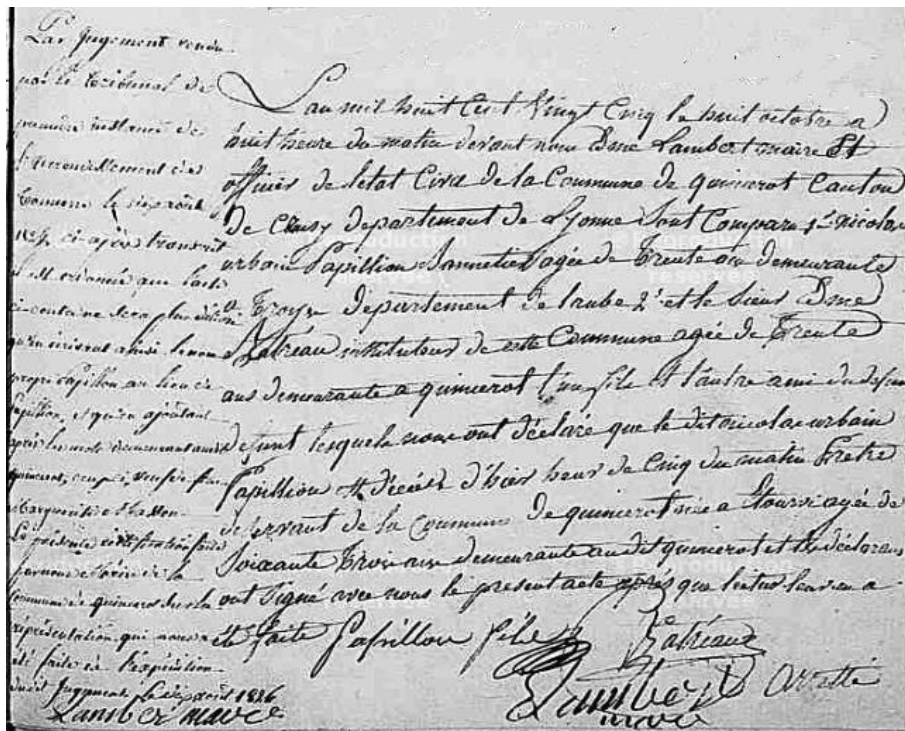 Par jugement rendu
par le tribunal de
première instance de
l'arrondissement de
Tonnerre le six août
ci après transcrit
il est ordonné que l'acte
ci-contre sera
qu'en écrivant ainsi le nom
propre Papillon au lieu de
Papillion, et qu'en ajoutant
après les mots demeurant audit
quincerot,
Marguerite
La présente rectification faite
par nous maire de la
commune de quincerot sur la
représentation qui nous a
été faite de l'expédition
dudit jugement le dix août 1826
Lambert maire
L'an mil huit Cent Vingt Cinq le huit octobre a
huit heure du matin devant nous Edme Lambert maire Et
officier de letat Civil de la Commune de quincerot Canton
de Crusy departement de Lyonne Sont Comparu 1º nicolas
urbain Papillion Bannetier agée de Trente ans demeurante
a Troyes departement de laube 2º et le Sieur Edme
Ratréau instituteur de cette Commune agée de Trente
ans demeurante a quincerot l'un file et l'autre ami du defun
defunt lesquele nous ont déclaré que le dit nicolas urbain
Papillion Et décédé d'hier heur de Cinq du matin Pretre
desservant de la Commune de quincerot née a agée de
Soixante Trois ans demeurante au dit quincerot et les déclarans
ont Signé avec nous le present acte après que lectur leur en a
Eté faite Papillon file Ratréau
Lambert
maire